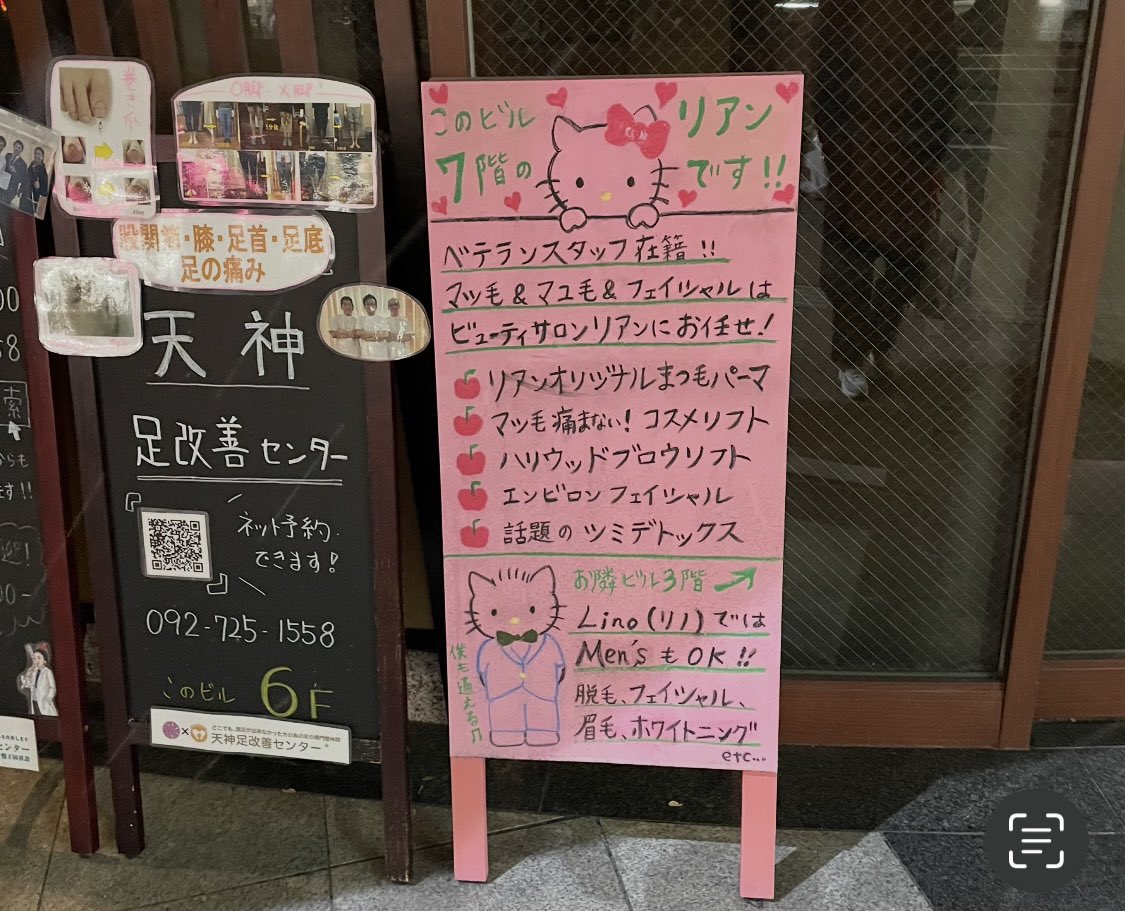 巻き爪
O脚 X脚
股関節・膝・足首・足底
足の痛み
天神
足改善センター
ネット予約
できます!
092-725-1558
このビル 6F
天神足改善センター
このビル
7階の
リアン
です!!
ベテランスタッフ在籍!!
マツ毛&マユ毛&フェイシャルは
ビューティサロンリアンにお任せ!
リアンオリジナルまつ毛パーマ
マツ毛痛まない!コスメリフト
ハリウッドブロウリフト
エンビロンフェイシャル
話題のツミデトックス
お隣ビル3階
Lino(リノ)では
Men's も OK!!
脱毛、フェイシャル、
眉毛、ホワイトニング
etc...
僕も通える